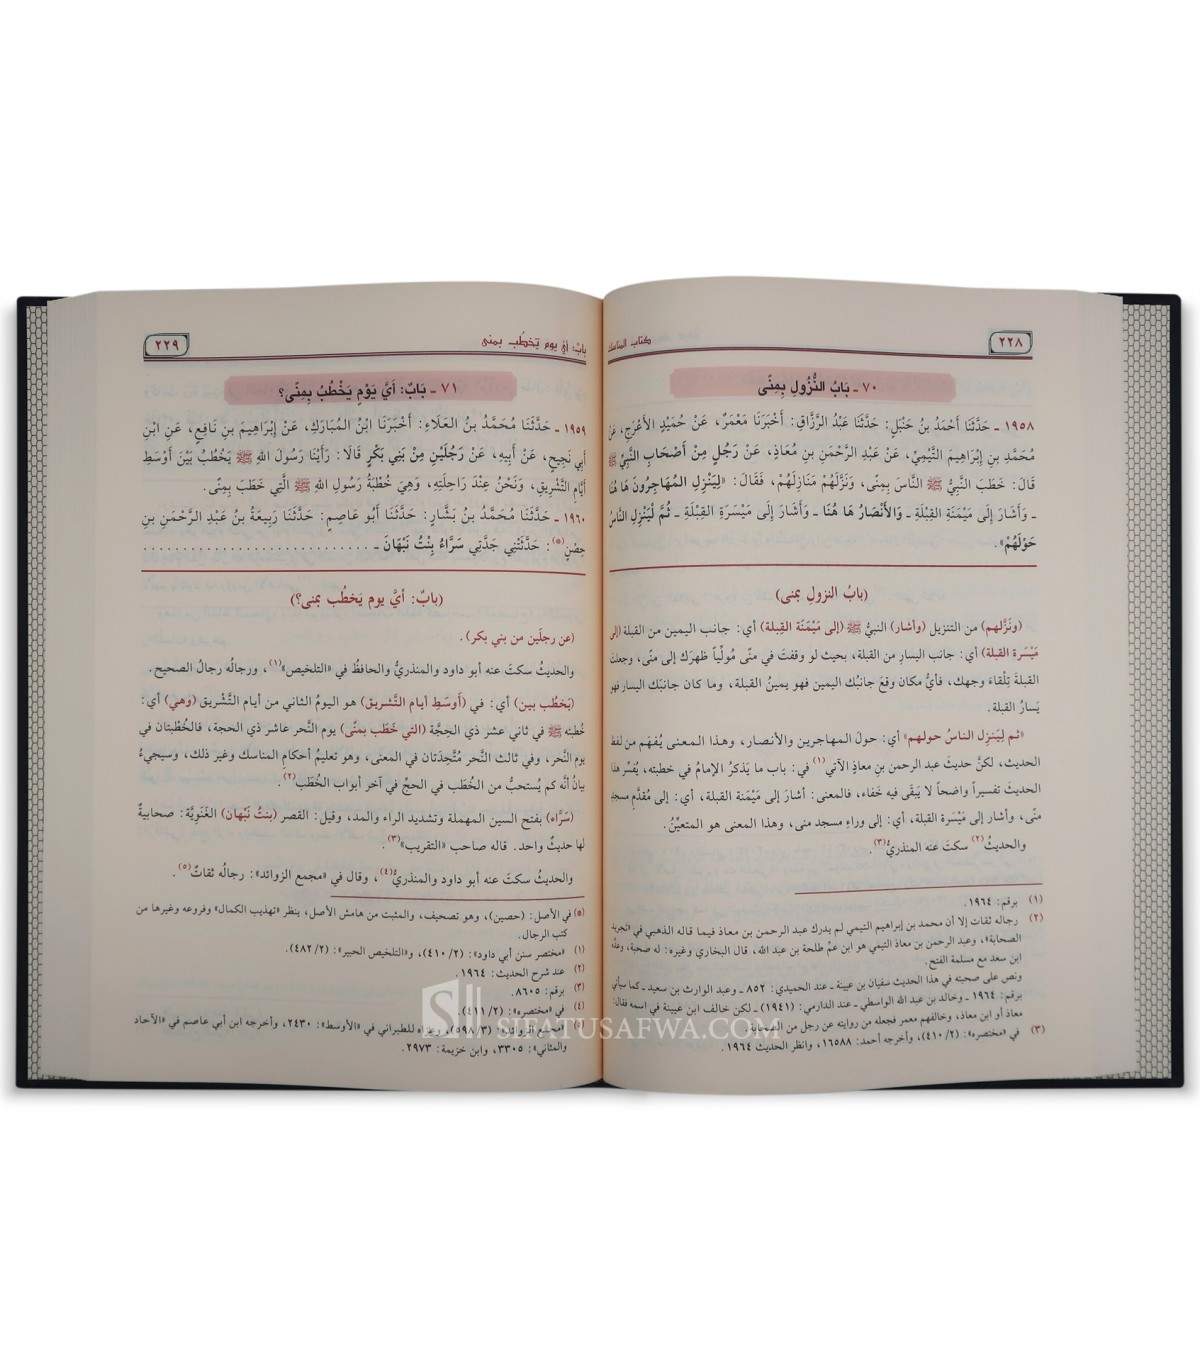 ٢٢٨
كتاب المناسك
٧٠ ـ بَابُ النُّزُولِ بِمِنًى
١٩٥٨ ـ حَدَّثَنَا أَحْمَدُ بنُ حَنْبَلٍ: حَدَّثَنَا عَبْدُ الرَّزَّاقِ: أَخْبَرَنَا مَعْمَرٌ، عَنْ حُمَيْدٍ الأَعْرَجِ، عَنْ
مُحَمَّدِ بنِ إِبْرَاهِيمَ التَّيْمِيِّ، عَنْ عَبْدِ الرَّحْمَنِ بنِ مُعَاذٍ، عَنْ رَجُلٍ مِنْ أَصْحَابِ النَّبِيِّ ﷺ
قَالَ: خَطَبَ النَّبِيُّ ﷺ النَّاسَ بِمِنًى، وَنَزَّلَهُمْ مَنَازِلَهُمْ، فَقَالَ: «لِيَنْزِلِ المُهَاجِرُونَ هَا هُنَا
ـ وَأَشَارَ إِلَى مَيْمَنَةِ القِبْلَةِ ـ وَالأَنْصَارُ هَا هُنَا ـ وَأَشَارَ إِلَى مَيْسَرَةِ القِبْلَةِ ـ ثُمَّ لْيَنْزِلِ النَّاسُ
حَوْلَهُمْ».
(بابُ النزولِ بمنى)
(ونَزَّلهم) من التنزيل (وأشار) النبيُّ ﷺ (إلى مَيْمَنَة القِبلة) أي: جانب اليمين من القبلة (إلى
مَيْسَرة القبلة) أي: جانب اليسارِ من القبلة، بحيث لو وقفتَ في منًى مُولِّياً ظهرَك إلى منًى، وجعلتَ
القبلةَ تِلْقاءَ وجهك، فأيُّ مكان وقعَ جانبُك اليمين فهو يمينُ القبلة، وما كان جانبَك اليسار فهو
يَسارُ القبلة.
«ثم لِيَنزِل الناسُ حولهم» أي: حولَ المهاجرين والأنصار، وهذا المعنى يُفهَم من لفظ
الحديث، لكنَّ حديثَ عبد الرحمن بنِ معاذٍ الآتي(١) في: باب ما يَذكرُ الإمامُ في خطبته، يُفسِّر هذا
الحديثَ تفسيراً واضحاً لا يَبقَى فيه خَفاء، فالمعنى: أشارَ إلى مَيْمَنة القبلة، أي: إلى مُقدَّمِ مسجد
منًى، وأشار إلى مَيْسَرة القبلة، أي: إلى وراءِ مسجد منى، وهذا المعنى هو المتعيِّنُ.
والحديثُ(٢) سكتَ عنه المنذريُّ(٣).
(١) برقم: ١٩٦٤.
(٢) رجاله ثقات إلا أن محمد بن إبراهيم التيمي لم يدرك عبد الرحمن بن معاذ فيما قاله الذهبي في «تجريد
الصحابة»، وعبد الرحمن بن معاذ التيمي هو ابن عمّ طلحة بن عبد الله، قال البخاري وغيره: له صحبة، وعدَّه
ابن سعد مع مسلمة الفتح.
ونص على صحبته في هذا الحديث سفيان بن عيينة ـ عند الحميدي: ٨٥٢ ـ وعبد الوارث بن سعيد ـ كما سيأتي
برقم: ١٩٦٤ ـ وخالد بن عبد الله الواسطي ـ عند الدارمي: (١٩٤١) ـ لكن خالف ابن عيينة في اسمه فقال:
معاذ أو ابن معاذ، وخالفهم معمر فجعله من روايته عن رجل من الصحابة.
(٣) في «مختصره»: (٢/ ٤١٠)، وأخرجه أحمد: ١٦٥٨٨، وانظر الحديث ١٩٦٤.
بابٌ: أيَّ يوم يَخطُب بمنى
٢٢٩
٧١ ـ بَابٌ: أَيَّ يَوْمٍ يَخْطُبُ بِمِنًى؟
١٩٥٩ ـ حَدَّثَنَا مُحَمَّدُ بنُ العَلَاءِ: أَخْبَرَنَا ابْنُ المُبَارَكِ، عَنْ إِبْرَاهِيمَ بنِ نَافِعٍ، عَنِ ابْنِ
أَبِي نَجِيحٍ، عَنْ أَبِيهِ، عَنْ رَجُلَيْنِ مِنْ بَنِي بَكْرٍ قَالَا: رَأَيْنَا رَسُولَ اللهِ ﷺ يَخْطُبُ بَيْنَ أَوْسَطِ
أَيَّامِ التَّشْرِيقِ، وَنَحْنُ عِنْدَ رَاحِلَتِهِ، وَهِيَ خُطْبَةُ رَسُولِ اللهِ ﷺ الَّتِي خَطَبَ بِمِنًى.
١٩٦٠ ـ حَدَّثَنَا مُحَمَّدُ بنُ بَشَّارٍ: حَدَّثَنَا أَبُو عَاصِمٍ: حَدَّثَنَا رَبِيعَةُ بنُ عَبْدِ الرَّحْمَنِ بنِ
حِصْنٍ(٥): حَدَّثَتْنِي جَدَّتِي سَرَّاءُ بِنْتُ نَبْهَانَ ـ ............................
(بابٌ: أيَّ يوم يَخطُب بمنى؟)
(عن رجلَين من بني بكر).
والحديثُ سكتَ عنه أبو داود والمنذريُّ والحافظُ في «التلخيص»(١)، ورجالُه رجالُ الصحيح.
(يَخطُب بين) أي: في (أَوسَطِ أيام التَّشريق) هو اليومُ الثاني من أيام التَّشريق (وهي) أي:
خُطبته ﷺ في ثاني عشر ذي الحِجَّة (التي خَطَب بمنًى) يوم النَّحر عاشرِ ذي الحجة، فالخُطْبتان في
يوم النَّحر، وفي ثالث النَّحر مُتَّحِدَتان في المعنى، وهو تعليمُ أحكامِ المناسك وغير ذلك، وسيجيءُ
بيانُ أنَّه كم يُستحبُّ من الخُطَب في الحجِّ في آخر أبواب الخُطَب(٢).
(سَرَّاء) بفتح السين المهملة وتشديد الراء والمد، وقيل: القصر (بنتُ نَبْهان) الغَنَوِيَّة: صحابيةٌ
لها حديثٌ واحد. قاله صاحب «التقريب»(٣).
والحديثُ سكتَ عنه أبو داود والمنذريُّ(٤)، وقال في «مجمع الزوائد»: رجالُه ثقاتٌ(٥).
(٥) في الأصل: (حصين)، وهو تصحيف، والمثبت من هامش الأصل، ينظر «تهذيب الكمال» وفروعه وغيرها من
كتب الرجال.
(١) «مختصر سنن أبي داود»: (٢/ ٤١٠)، و«التلخيص الحبير»: (٢/ ٤٨٢).
(٢) عند شرح الحديث: ١٩٦٤.
(٣) برقم: ٨٦٠٥.
(٤) في «مختصره»: (٢/ ٤١١).
(٥) «مجمع الزوائد»: (٣/ ٥٩٨)، وعزاه للطبراني في «الأوسط»: ٢٤٣٠، وأخرجه ابن أبي عاصم في «الآحاد
والمثاني»: ٣٣٠٥، وابن خزيمة: ٢٩٧٣.
SIFATUSAFWA.COM